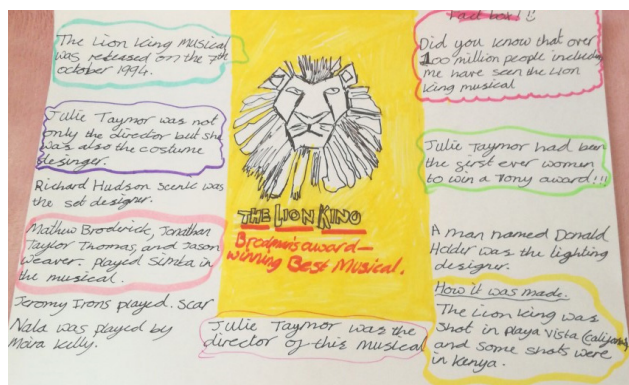 The Lion King Musical
was released on the 7th
october 1994.
Julie Taymor was not
only the director but she
was also the costume
desinger.
Richard Hudson scenic was
the set designer.
Mathew Broderick, Jonathan
Taylor Thomas, and Jason
weaver. played Simba in
the musical.
Jeromy Irons played. Scar
Nala was played by
Moira Kelly.
THE LION KING
award-
winning Best Musical.
Julie Taymor was the
director of this Musical
Fact box!!
Did you know that over
100 million people including
me have seen the Lion
King musical
Julie Taymor had been
the first ever women
to win a Tony award!!!
A man named Donald
Holder was the lighting
designer.
How it was made.
The Lion King was
shot in playa Vista (California)
and some shots were
in Kenya.